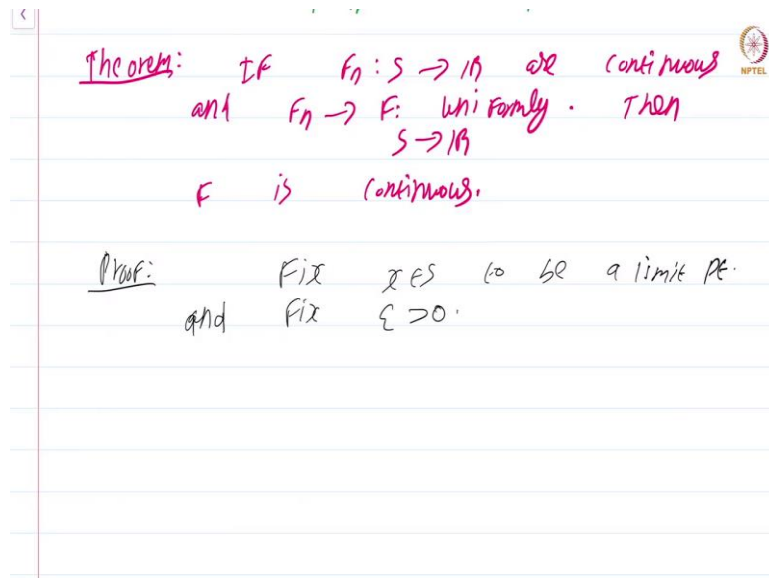 Theorem: IF Fn : S → IR are continuous
and Fn → F: uniformly. Then
S → IR
F is continuous.
Proof: Fix x ∈ S to be a limit pt.
and Fix ε > 0.
NPTEL